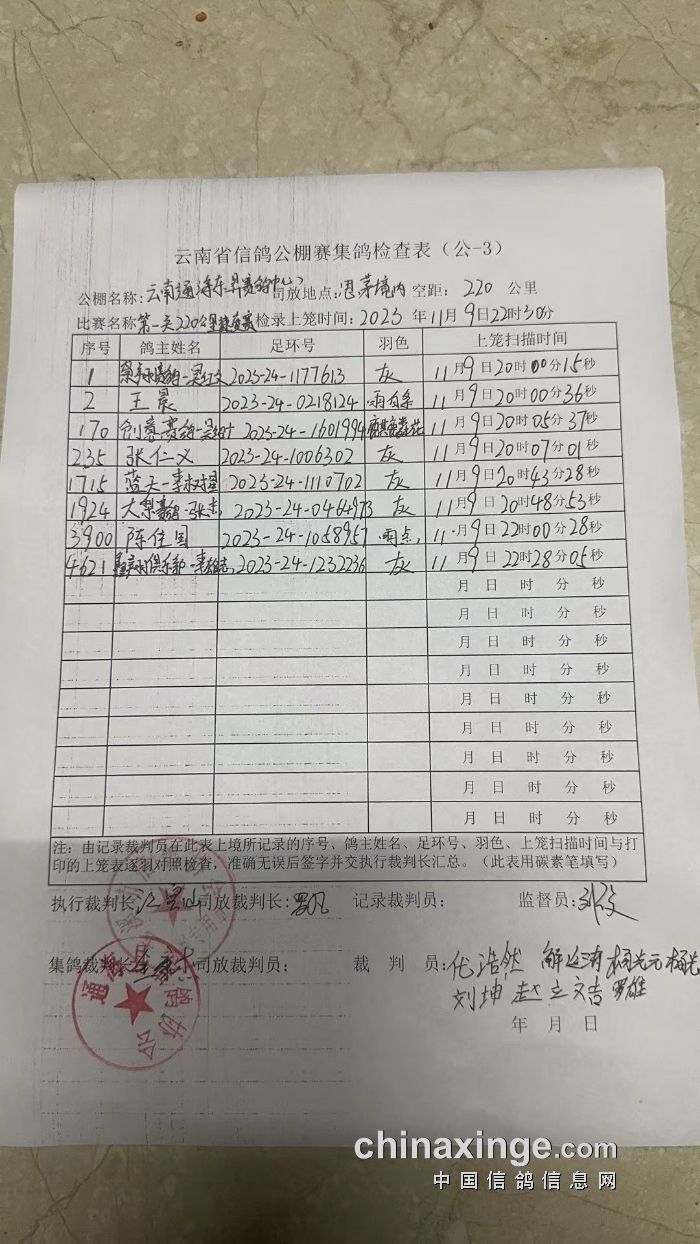 云南省信鸽公棚赛集鸽检查表（公-3）
公棚名称:云南通海东昇赛鸽中心 司放地点:思茅境内 空距: 220 公里
比赛名称 第一关220公里 检录上笼时间: 2023 年 11 月 9 日 22 时 30 分
序号 鸽主姓名 足环号 羽色 上笼扫描时间
1 2023-24-1177613 灰 11月9日20时00分15秒
2 王晨 2023-24-0218124 11月9日20时00分36秒
170 创赛赛鸽 2023-24-1601994 11月9日20时05分37秒
235 张仁义 2023-24-1006302 灰 11月9日20时07分01秒
1715 蓝天-李树 2023-24-1110702 灰 11月9日20时43分28秒
1924 大梨赛鸽-张志 2023-24-0464973 灰 11月9日20时48分53秒
3900 陈佳国 2023-24-1058957 雨点 11月9日22时00分28秒
4621 俱乐部 2023-24-1232236 灰 11月9日22时28分05秒
月 日 时 分 秒
月 日 时 分 秒
月 日 时 分 秒
月 日 时 分 秒
月 日 时 分 秒
月 日 时 分 秒
月 日 时 分 秒
月 日 时 分 秒
月 日 时 分 秒
注：由记录裁判员在此表上境所记录的序号、鸽主姓名、足环号、羽色、上笼扫描时间与打
印的上笼表逐羽对照检查，准确无误后签字并交执行裁判长汇总。（此表用碳素笔填写）
执行裁判长: 司放裁判长: 罗凡 记录裁判员: 监督员:
集鸽裁判长: 司放裁判员: 裁 判 员: 代浩然 杨光元
刘坤 赵立文 罗雄
年 月 日
通海县信鸽协会
chinaxinge.com
中国信鸽信息网